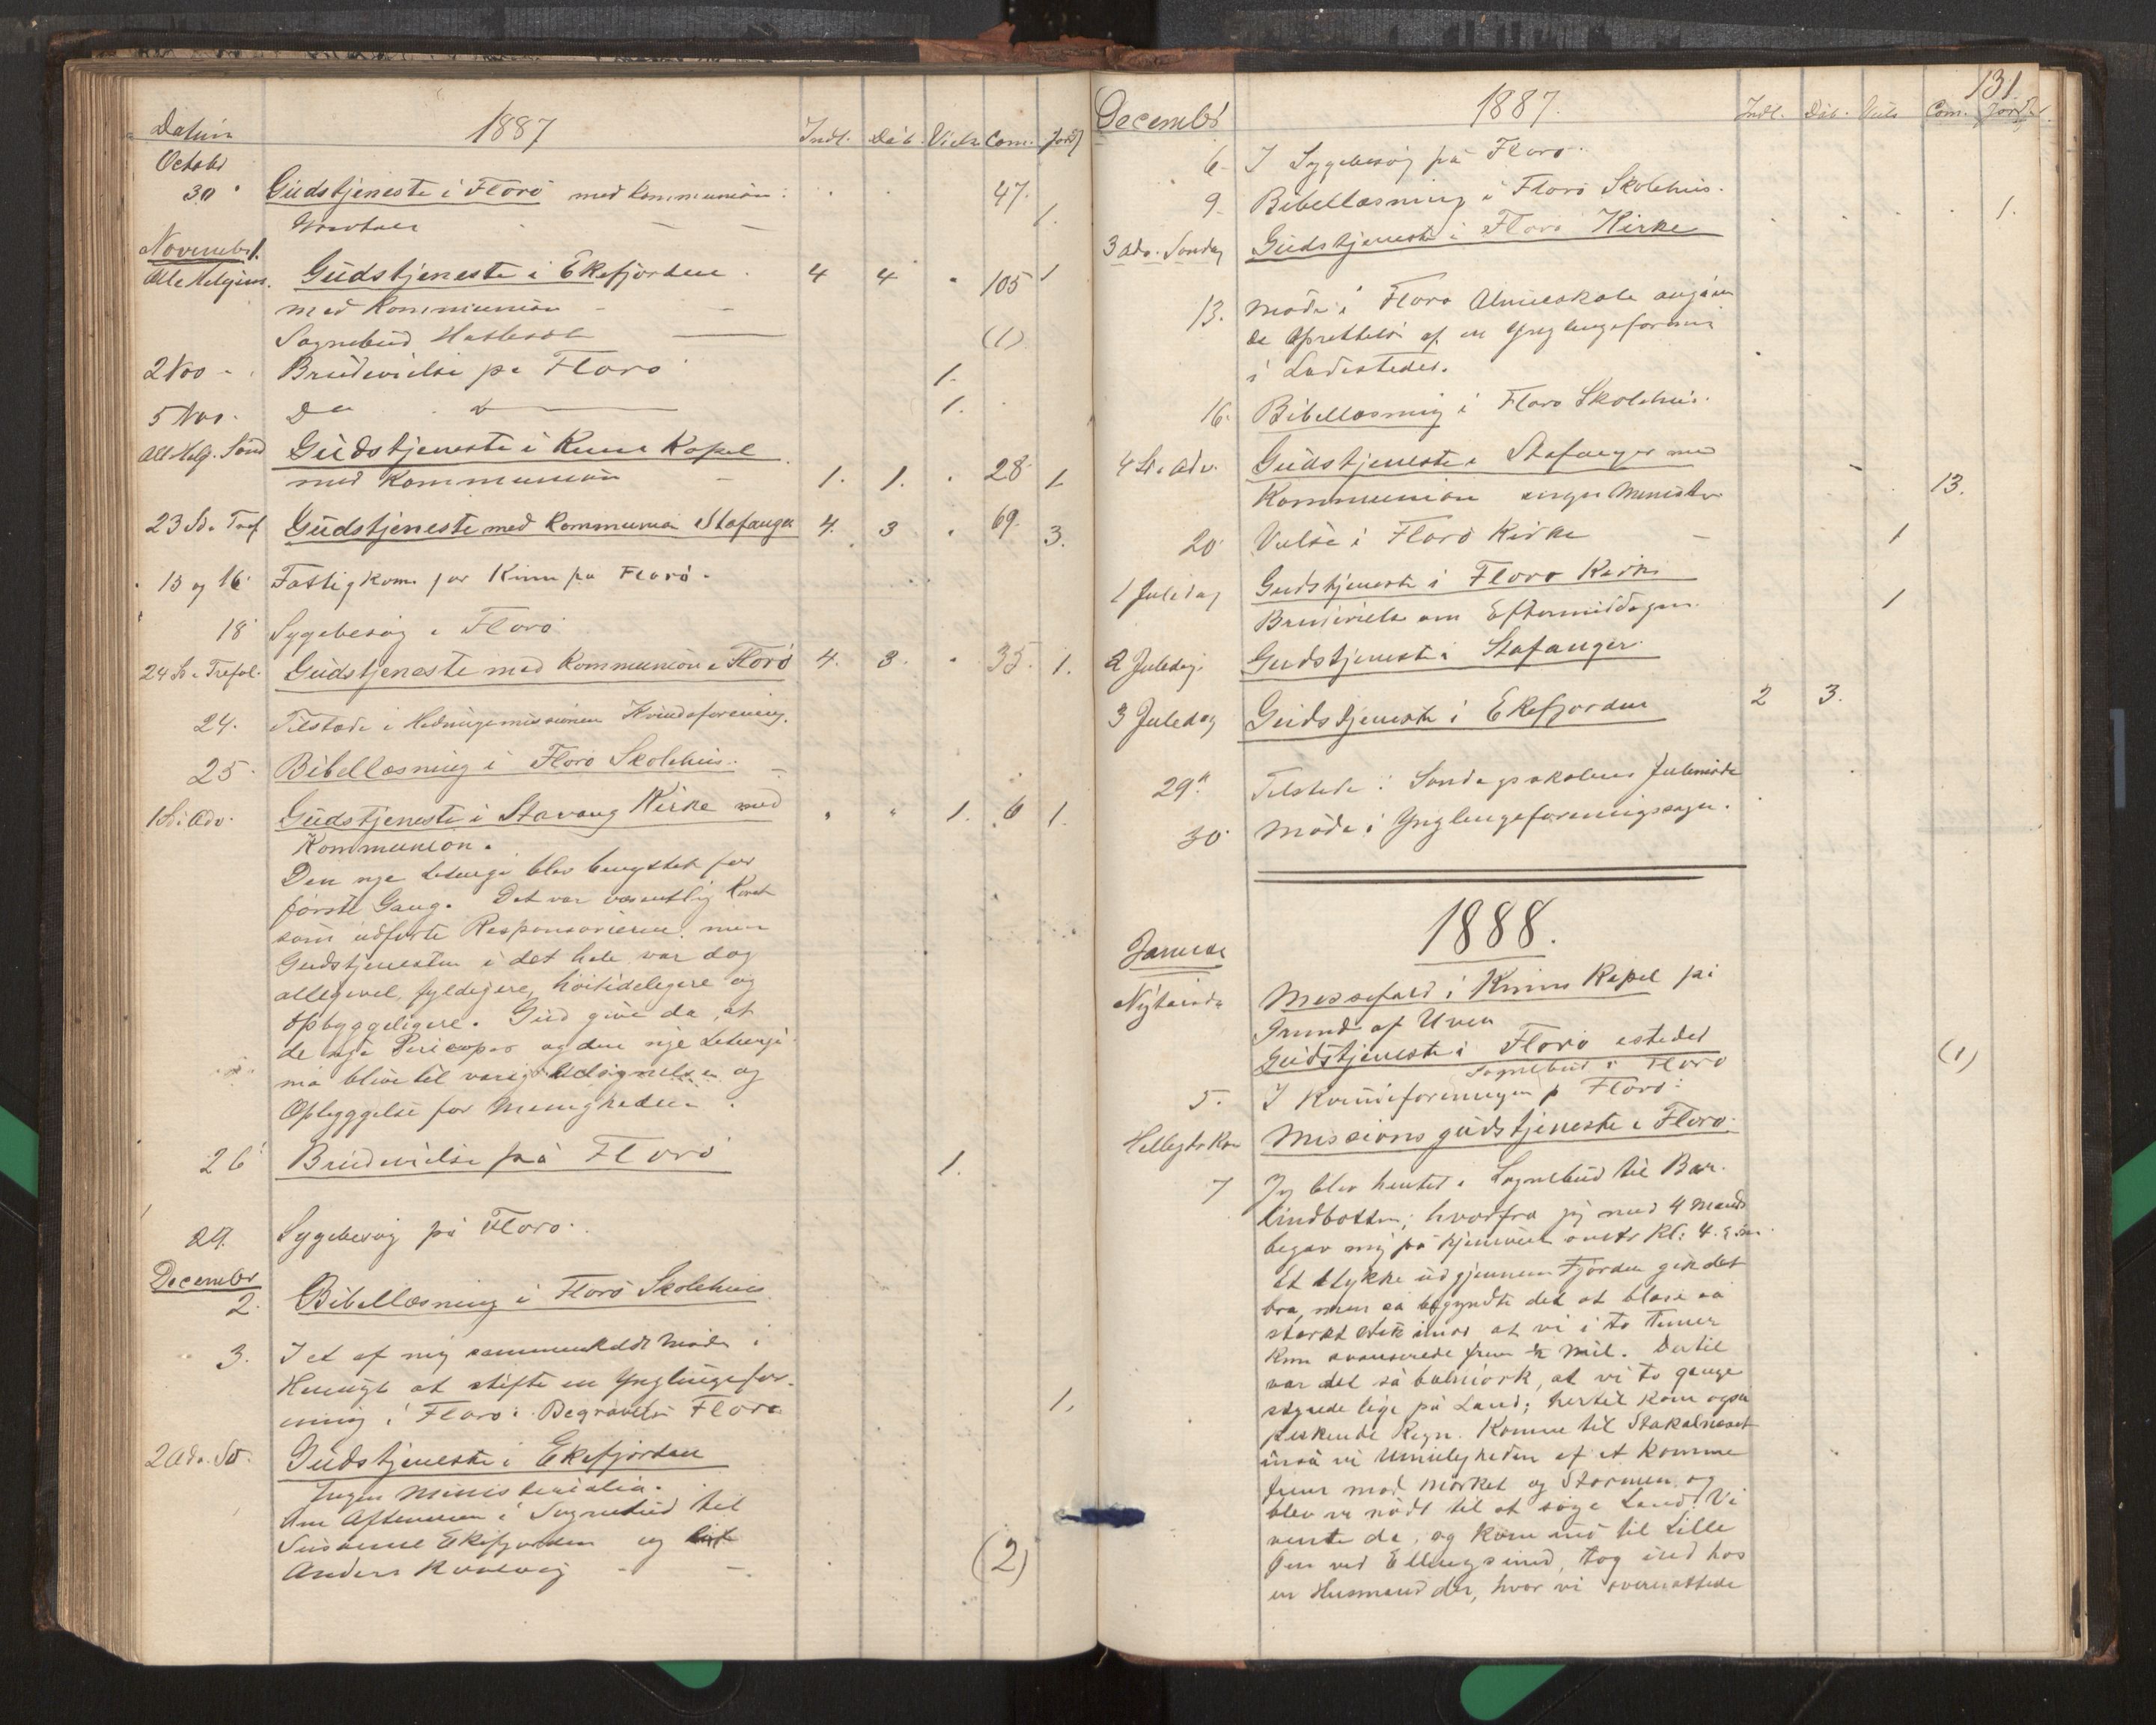 Datum 1887 Indl. Dåb. Viels. Com. Jordf
Octobr
30 Gudstjeneste i Florö med Kommunion: 47.
1.
Novembr 1.
Alle Helgens. Gudstjeneste i Ekefjorden 4 4 " 105 1
med Kommunion
Sognebud (1)
2 Nov Brudevielse på Florö 1.
5 Nov. Do 1.
All Helg. Sønd Gudstjeneste i Kinn Kapel
med Kommunion 1. 1. " 28 1
23 S. e. Tref Gudstjeneste med Kommunion Stafanger 4. 3 " 69. 3.
13 og 16. Fattigkom. for Kinn på Florö.
18 Sygebesøg i Florö
24 S. e. Trefol. Gudstjeneste med Kommunion i Florö 4. 3. " 35. 1.
24. Tilstede i Hedningemissionens Kvindeforening.
25. Bibellæsning i Florö Skolehus.
1 S. i Adv. Gudstjeneste i Stavang Kirke med " " 1. 6 1.
Kommunion.
Den nye Liturgi blev benyttet for
første Gang. Det var væsentlig Koret
som udførte Responsorierne, men
Gudstjenesten i det hele var dog
alligevel fyldigere, høitideligere og
opbyggeligere. Gud give da, at
de nye Pericoper og den nye Liturgi
må blive til varig Velsignelse og
Opbyggelse for Menigheden.
26 Brudevielse på Florö 1.
29. Sygebesøg på Florö.
December
2. Bibellæsning i Florö Skolehus
3. I et af mig sammenkaldt Møde i
Hensigt at stifte en Ynglingefor-
ening i Florö. Begravelse Florö 1.
2 Adv. Sø. Gudstjeneste i Ekefjorden
Ingen Ministerialia.
Om Aftenen i Sognebud til
Susanne Ekefjorden og
Anders (2)
131
December 1887. Indl. Dåb. Viels Com. Jordf.
6. I Sygebesøg på Florö.
9. Bibellæsning i Florö Skolehus.
3 Adv. Søndag Gudstjeneste i Florö Kirke 1.
13. Møde i Florö Almueskole angåen
de Oprettelse af en Ynglingeforening
i Ladestedet.
16. Bibellæsning i Florö Skolehus.
4 S. i Adv. Gudstjeneste i Stafanger med
Kommunion ingen Minister 13.
20 Vielse i Florö Kirke 1
1 Juledag Gudstjeneste i Florö Kirke
Brudevielse om Eftermiddagen. 1
2 Juledag. Gudstjeneste i Stafanger.
3 Juledag Gudstjeneste i Ekefjorden 2 3.
29. Tilstede i Søndagsskolens Julemøde
30. Møde i Ynglingeforeningssagen.
1888.
Januar
Nytårsda Messefald i Kinn Kapel på
Grund af Uveir
Gudstjeneste i Florö istedet
Sognebud i Florö (1)
5. I Kvindeforeningen på Florö.
Helligtr Kon Missionsgudstjeneste i Florö.
7 Jeg blev hentet i Sognebud til Bar-
lindbotten; hvorfra jeg med 4 Mand
begav mig på Hjemveien Kl. 4.
Et stykke ud gjennem Fjorden gik det
bra, men så begyndte det at blæse så
stærkt imod at vi i to Timer
kun avancerede frem ½ Mil. Dertil
var det så bælmörk, at vi to gange
styrede lige på Land; hertil kom også
piskende Regn. Komne til Stakalneset
inså vi Umuligheden af at komme
frem mod Mørket og Stormen og
blev nødt til at søge Land. Vi
vente da, og kom ind til Lille
Øen ved Ellingsund, tog ind hos
en Husmand der, hvor vi overnattede